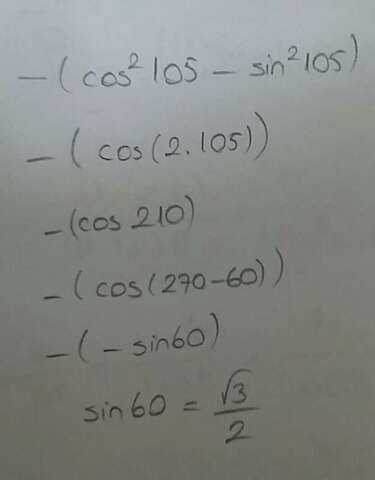 -(cos²105 - sin²105)
-(cos(2.105))
-(cos 210)
-(cos(270-60))
-(-sin60)
sin60 = √3/2